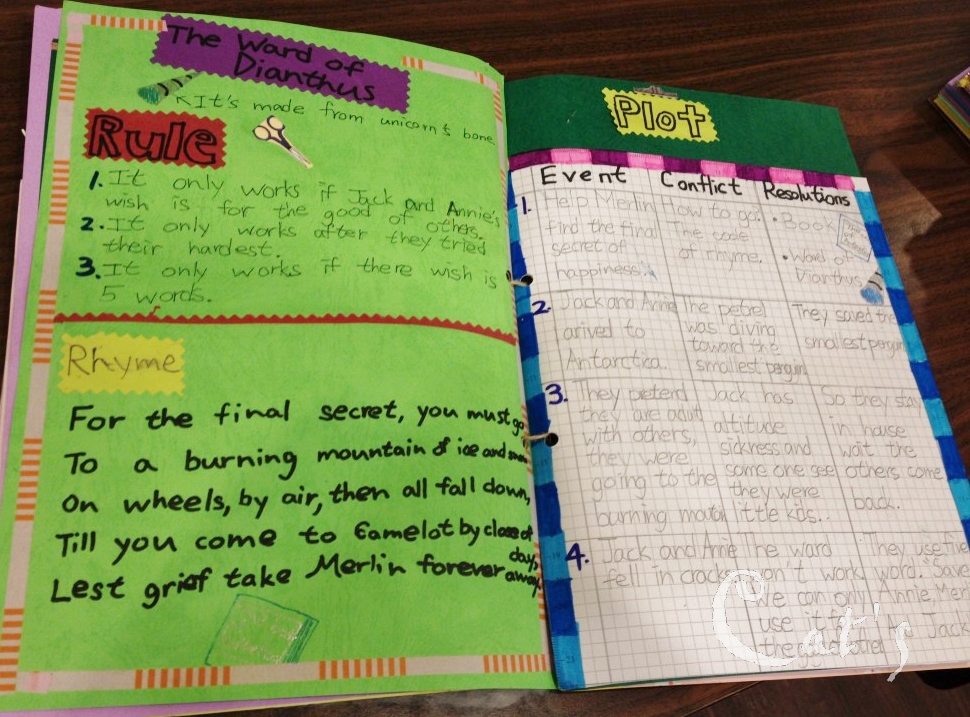 The Ward of
Dianthus
It's made from unicorn's bone.
Rule
1. It only works if Jack and Annie's
wish is for the good of others.
2. It only works after they tried
their hardest.
3. It only works if there wish is
5 words.
Rhyme
For the final secret, you must go
To a burning mountain of ice and snow
On wheels, by air, then all fall down,
Till you come to Camelot by close of
day,
Lest grief take Merlin forever away.
Plot
Event Conflict Resolutions
1. Help Merlin
find the final
secret of
happiness.
How to go.
The code
of rhyme.
• Book
• Ward of
Dianthus
2. Jack and Annie
arived to
Antarctica.
The petrel
was diving
toward the
smallest penguin
They saved the
smallest penguin
3. They pretend
they are adult
with others,
they were
going to the
burning
Jack has
altitude
sickress and
some one see
they were
little kids..
So they stay
in house
wait the
others come
back.
4. Jack and Annie
fell in cracks
The ward
won't work
we can only
use it for
the good of other
They use five
word. "Save
Annie, Mer
And Jack
Cat's